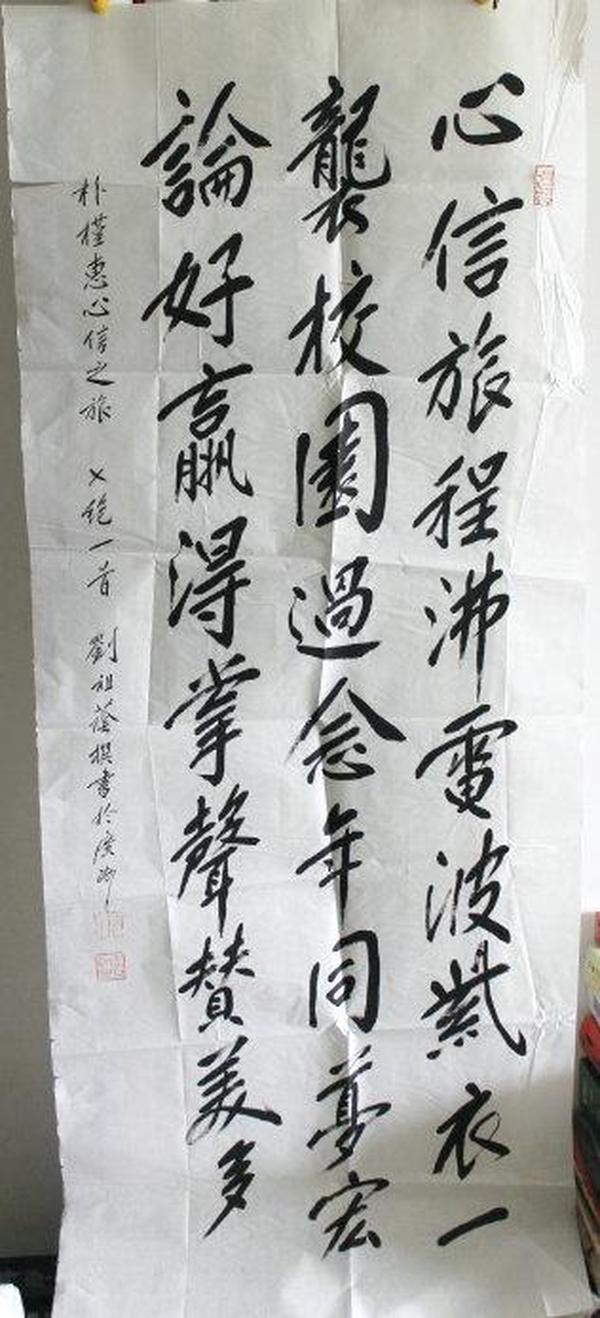 心信旅程沸雷波紫衣一
襲校園過念年同夢宏
論好贏得掌聲贊美多
朴槿惠心信之旅 乂絕一首 劉祖蔭撰書於廣州